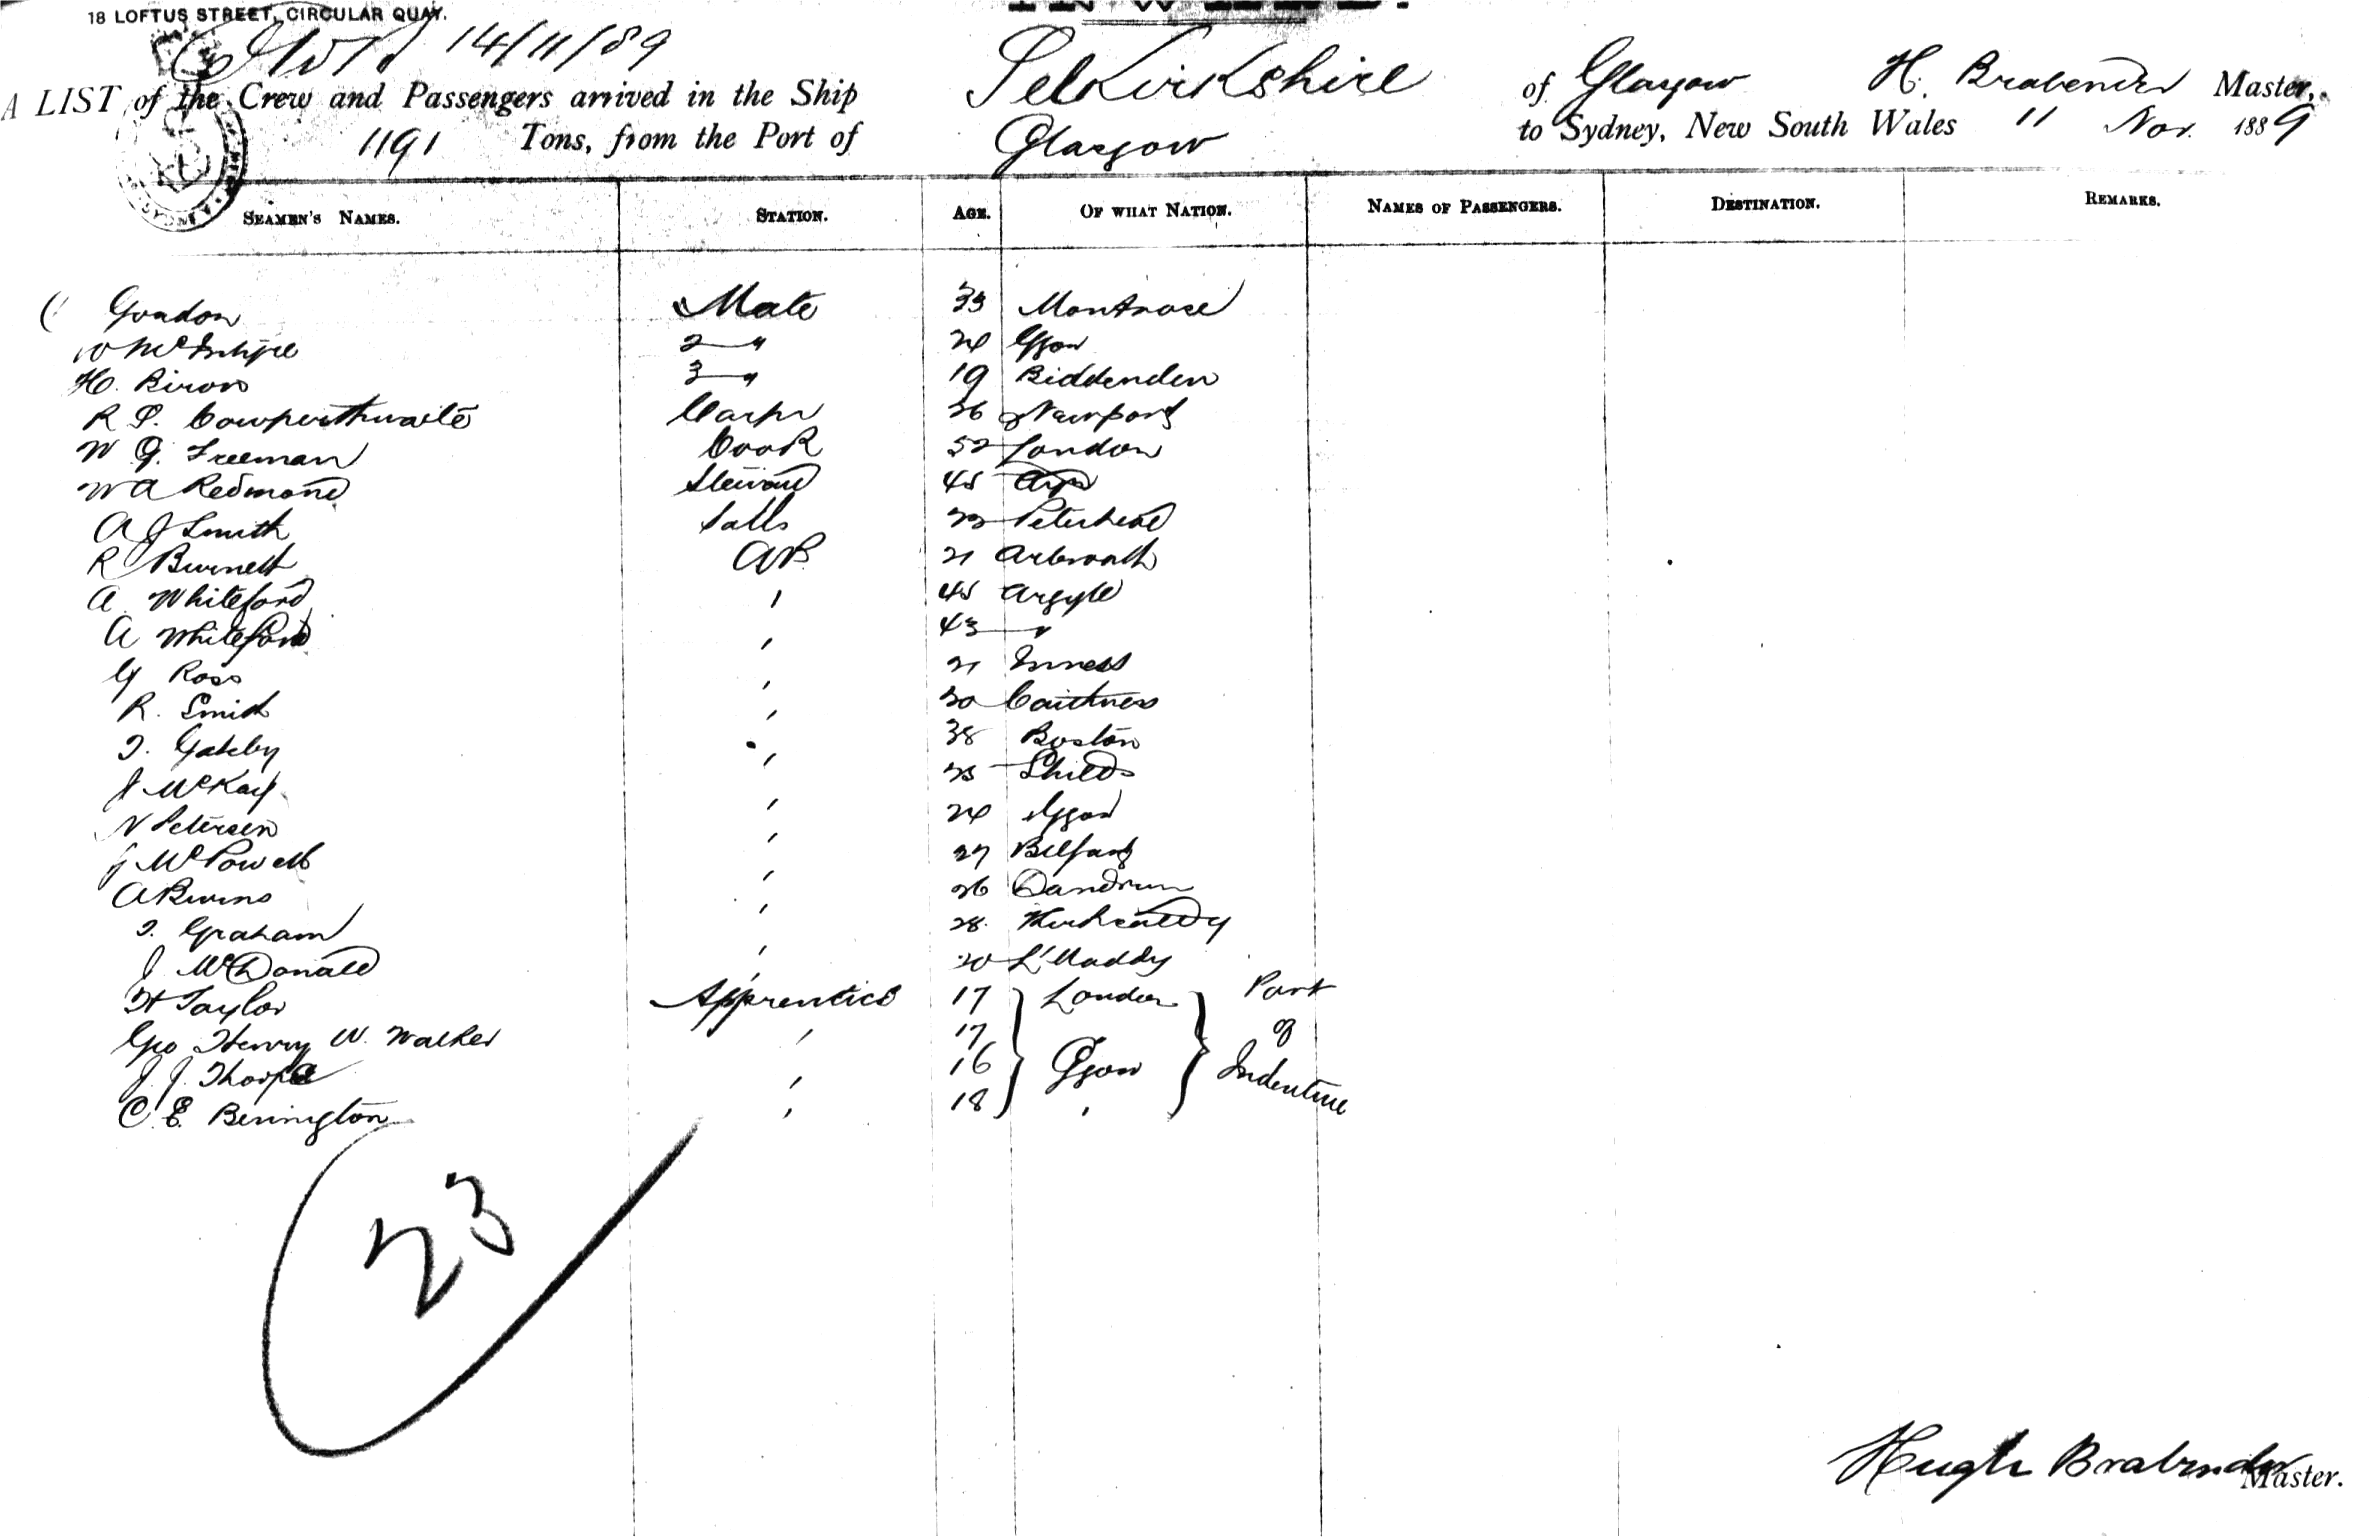 18 LOFTUS STREET, CIRCULAR QUAY.
14/11/89
A LIST of the Crew and Passengers arrived in the Ship Selkirkshire of Glasgow H. Brabender Master,
1191 Tons, from the Port of Glasgow to Sydney, New South Wales 11 Nov. 1889
SEAMEN'S NAMES. STATION. AGE. OF WHAT NATION. NAMES OF PASSENGERS. DESTINATION. REMARKS.
Gordon Mate 33 Montrose
W McIntyre 2 " 24 Gsgow
H. Birors 3 " 19 Biddenden
R P. Cowperthwaite Carpr 26 Newport
W G. Freeman Cook 52 London
W A Redmond Steward 45
A J Smith Sails 22 Peterhead
R Burnett AB 21 Arbroath
A Whiteford " 45 Argyle
A Whiteford " 43 "
G Ross " 21 Inness
R. Smith " 30 Caithness
T. Gatsby " 38 Boston
J McKay " 25 Shields
N Petersen " 24 Gsgow
J McPowell " 27 Belfast
A Burns " 26 Dandrum
T. Graham " 28. Kirkcaldy
J McDonald " 20 L'Maddy
H Taylor Apprentice 17 London Part
Geo Henry W. Walker " 17 of
J. J. Thorpe " 16 Gsgow Indenture
C. E. Berington " 18 "
23
Hugh Brabender Master.